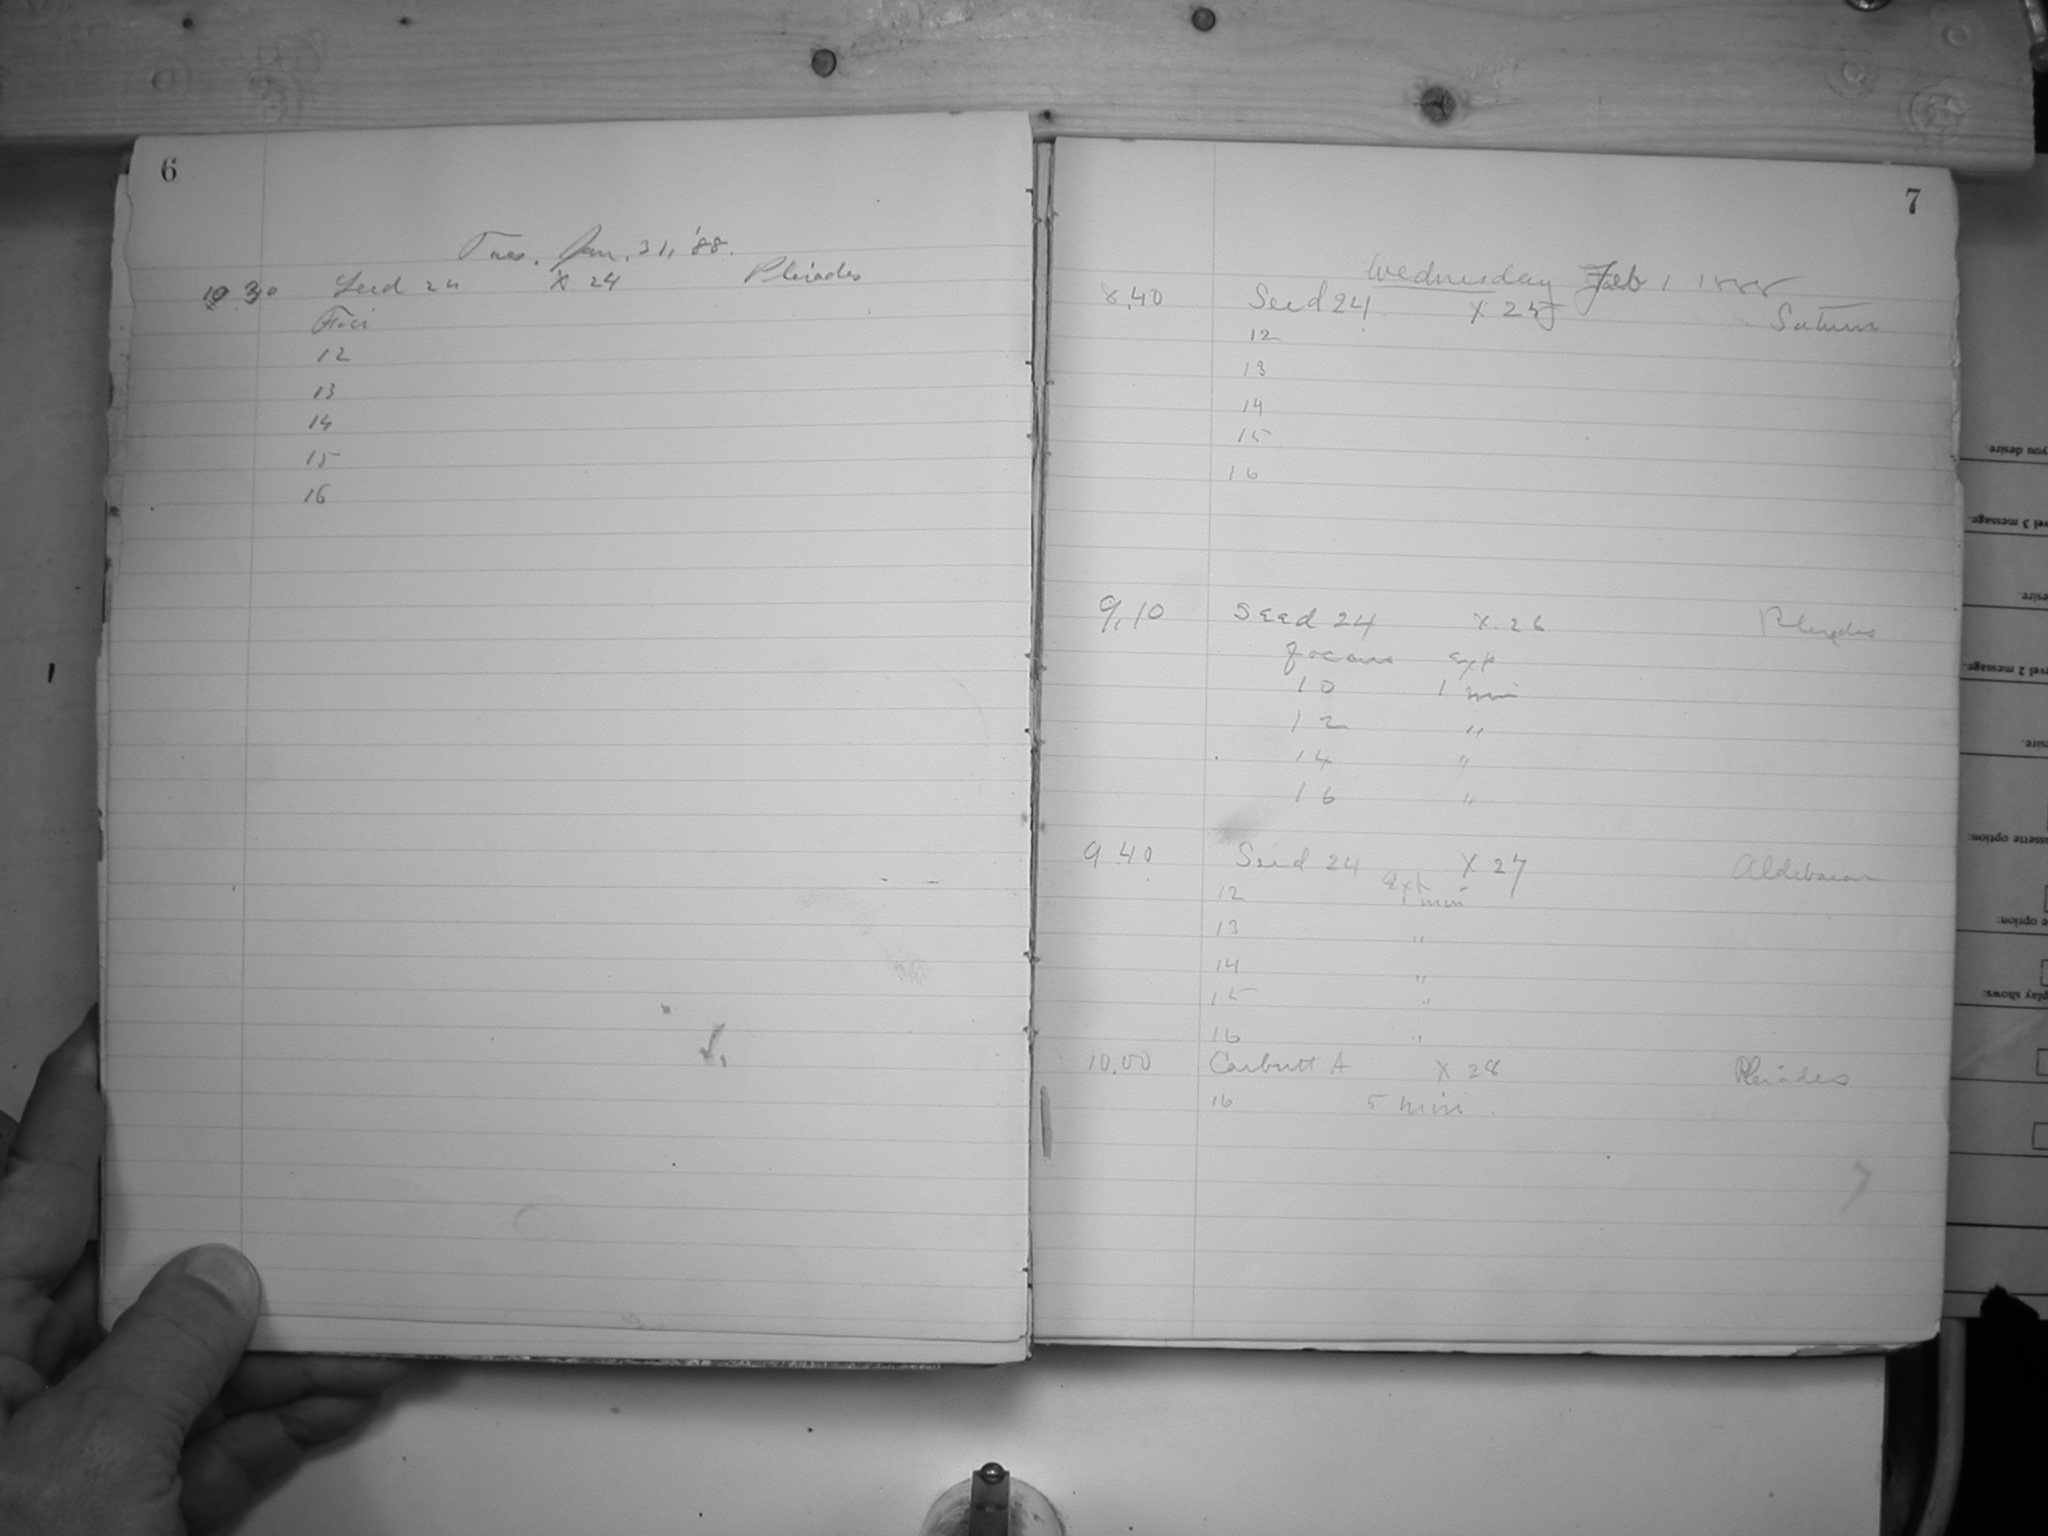 6
Tues. Jan. 31, '88.
10 30 Seed 24 X 24 Pleiades
Foci
12
13
14
15
16
7
Wednesday Feb 1 1888
8.40 Seed 24 X 25 Saturn
12
13
14
15
16
9,10 Seed 24 X. 26 Pleiades
focus exp
10 1 min
12 "
14 "
16 "
9 40 Seed 24 X 27 Aldebaran
Exp
12 1 min
13 "
14 "
15 "
16 "
10.00 Carbutt A X 28 Pleiades
16 5 min
you desire.
vel 3 message.
esire.
evel 2 message.
esire.
assette option:
e option:
play shows: